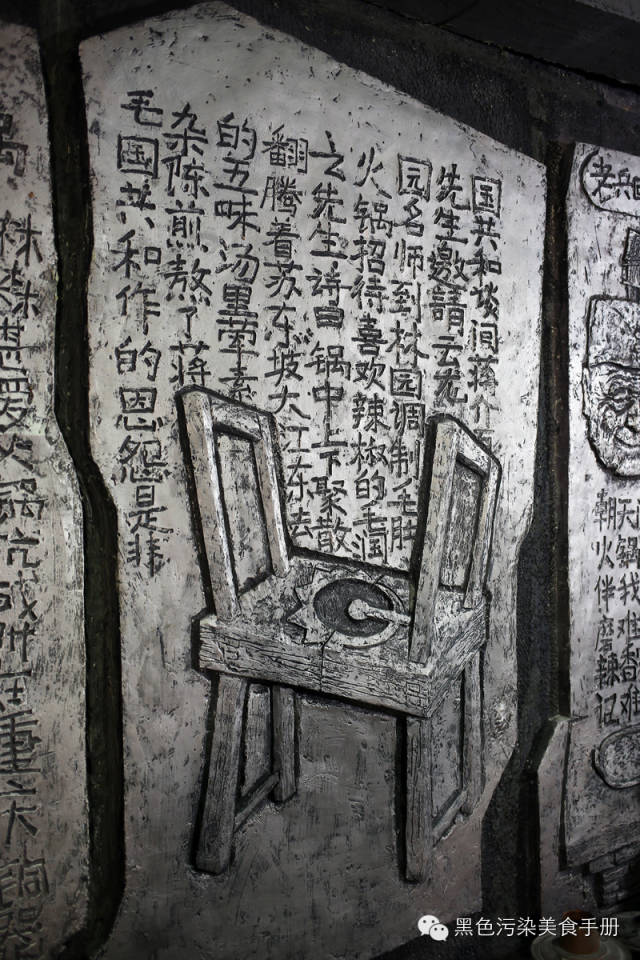 老兵
天锅我难香难
朝火伴磨辣
国共和谈间蒋介
先生邀請云
园名师到林园调制毛肚
火锅招待喜欢辣椒的毛润
之先生诗曰锅中上下聚散
翻腾着苏东坡大江东去
的五味汤里荤素
杂陈煎熬了蒋
毛国共和作的恩怨是非
甚爱火锅抗战时在重庆
黑色污染美食手册